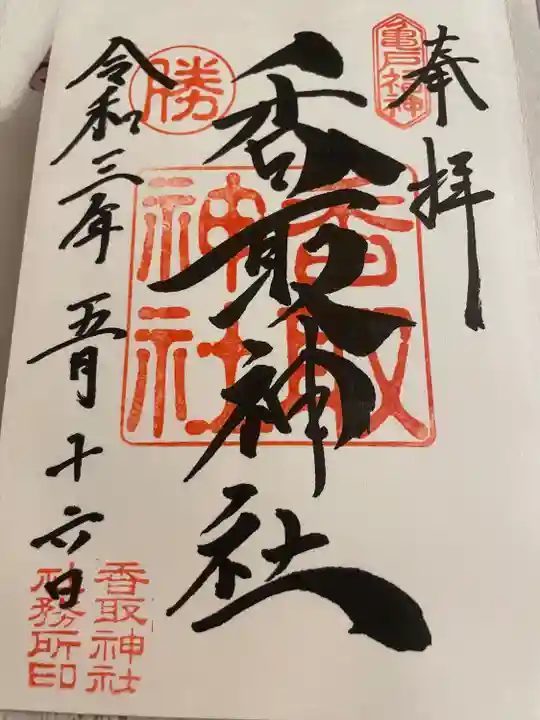 奉拝
亀戸福神
香取神社
香取
神社
勝
令和三年五月十六日
香取神社
社務所印